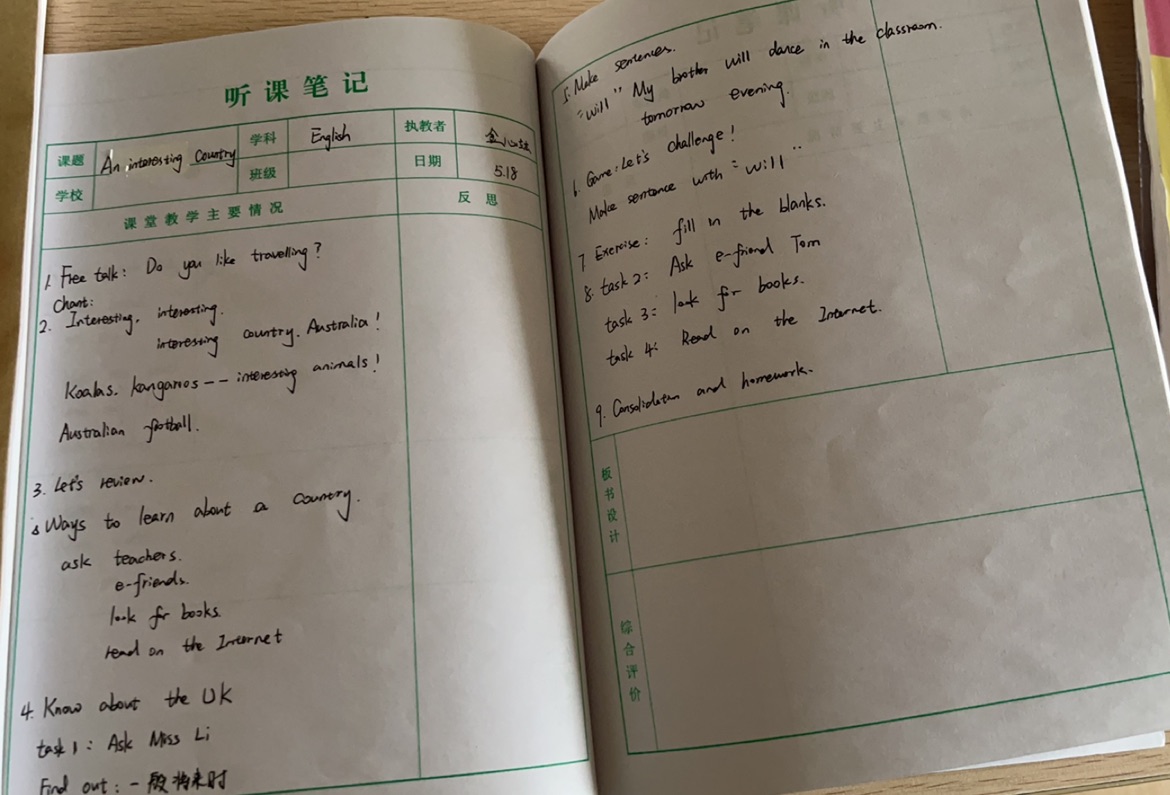 听课笔记
课题 An interesting Country 学科 English 执教者
学校 班级 日期 5.18
课堂教学主要情况 反思
1. Free talk: Do you like travelling?
Chant:
2. Interesting, interesting.
interesting country. Australia!
Koalas. kangaroos -- interesting animals!
Australian football.
3. Let's review.
Ways to learn about a country.
ask teachers.
e-friends.
look for books.
read on the Internet
4. Know about the UK
task 1: Ask Miss Li
Find out: 一般将来时
5. Make sentences.
"will" My brother will dance in the classroom.
tomorrow evening.
6. Game: Let's challenge!
Make sentence with "will"
7 Exercise: fill in the blanks.
8. task 2: Ask e-friend Tom
task 3: look for books.
task 4: Read on the Internet.
9. Consolidation and homework.
板书设计
综合评价